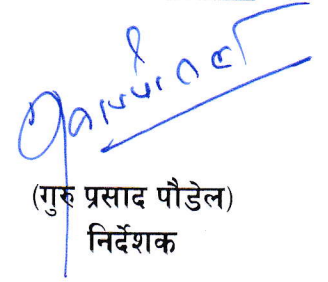 (गुरु प्रसाद पौडेल)
निर्देशक